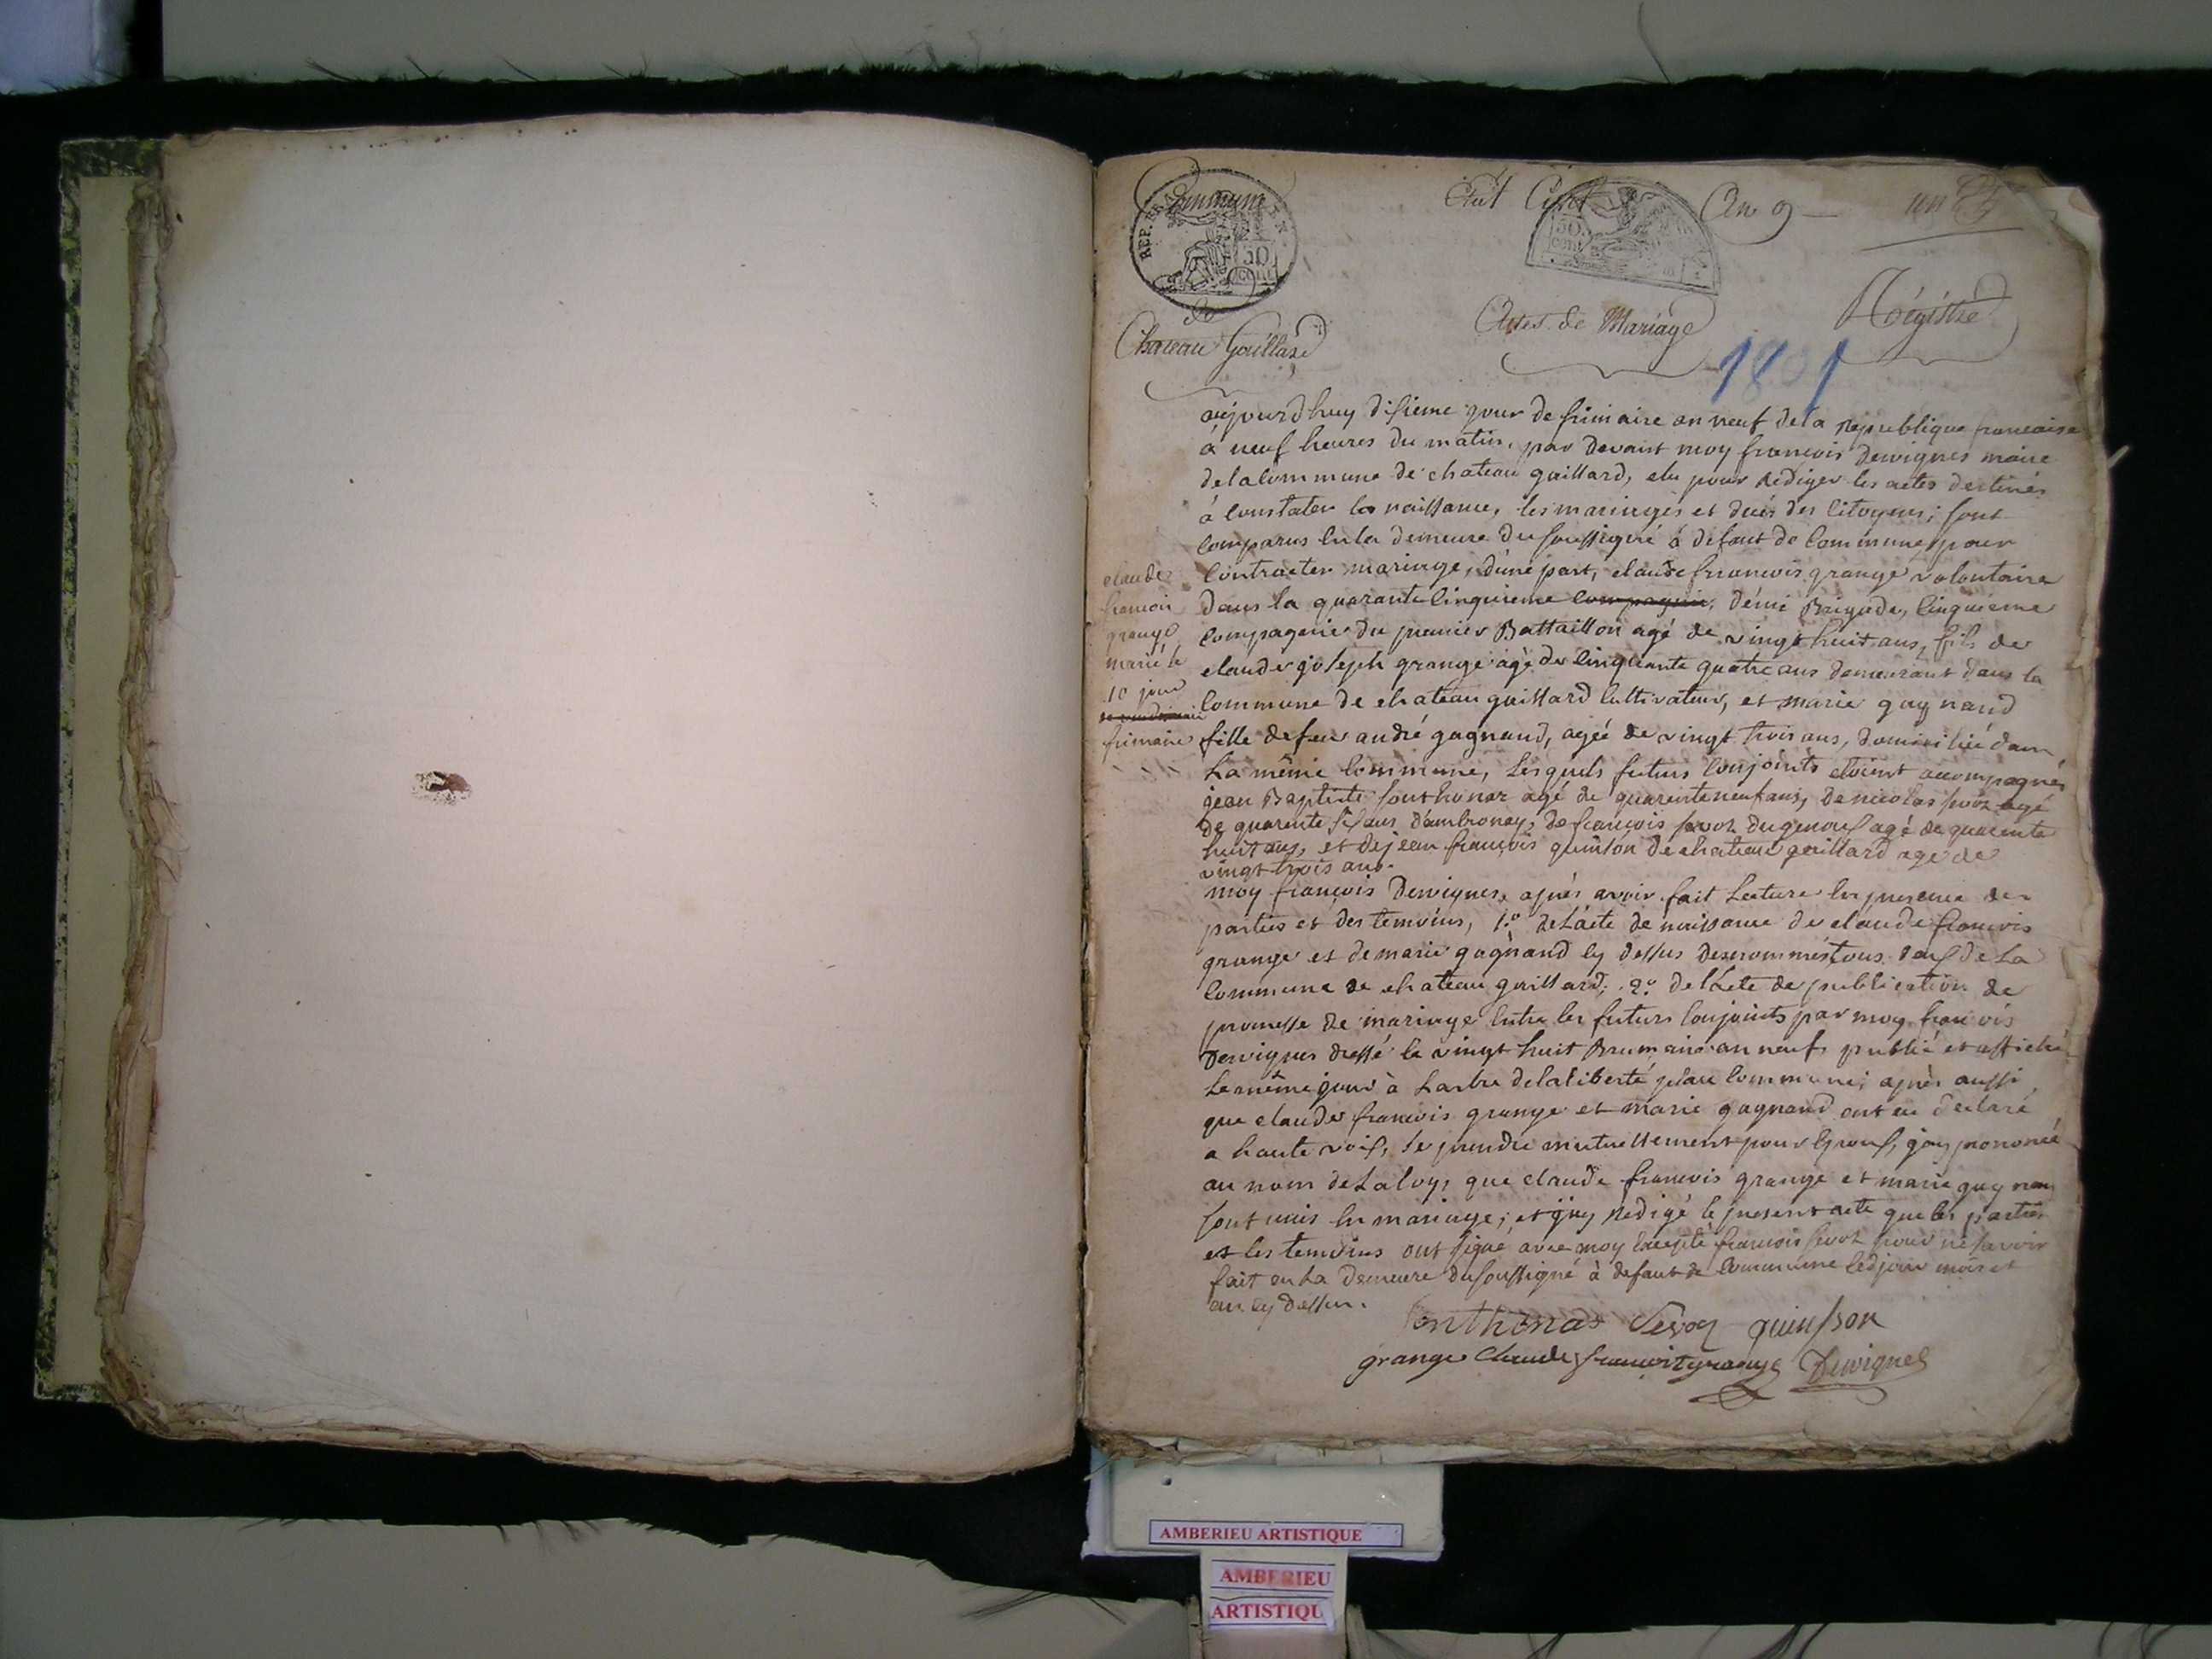 Commune
REP. FRA
50
cent
de
Chateau Gaillard
Etat Civil
50
cent
An 9 — un
Actes de Mariage
Régistre
1801
aujourdhuy disieme jour de frimaire an neuf de la republique francaise
à neuf heures du matin, par devant moy francois Dervignes maire
de la Commune de chateau gaillard, elu pour rediger les actes destinés
à constater la naissance, les mariages et decès des Citoyens; sont
comparus en la demeure du soussigné à defaut de Commune pour
contracter mariage, d'une part, claude francois grange volontaire
dans la quarante cinquieme compagnie, demi Brigade, cinquieme
compagnie du premier Battaillon agé de vingt huit ans, fils de
claude joseph grange agé de cinquante quatre ans demeurant dans la
Commune de chateau gaillard cultivateur, et marie gagnand
fille de feu andré gagnand, agée de vingt trois ans, domiciliée dans
La même Commune, Lesquels futurs conjoints etoient accompagnés
jean Baptiste fonthonar agé de quarante neuf ans, de nicolas sevoz agé
de quarente six ans d'ambronay, de francois sevoz agé de quarente
huit ans, et de jean francois quinson de chateau gaillard age de
vingt trois ans.
moy françois Dervignes, après avoir fait Lecture en presence des
parties et des temoins, 1.º de L'acte de naissance de claude francois
grange et de marie gagnand cy dessus denommés tous deux de La
Commune de chateau gaillard; 2.º de l'acte de publication de
promesse de mariage entre les futurs conjoints par moy francois
Dervignes dressé le vingt huit Brumaire an neuf, publié et affiché
Le même jour à L'arbre de la liberté de la Commune; après aussi
que claude francois grange et marie gagnand ont eu declaré
a haute voix, se prendre mutuellement pour Epoux, j'ay prononcé
au nom de La loy, que claude francois grange et marie gagnan
sont unis en mariage; et j'ay redigé le present acte que les parties
et les temoins ont signé avec moy Excepté francois sevoz pour ne savoir
fait en La demeure du soussigné à defaut de Commune led jour mois et
an cy dessus.
claude
francois
grange
marié le
10 jour
frimaire
fonthonar Sevoz quinsson
grange Claude francoit grange Dervignes
AMBERIEU ARTISTIQUE
AMBERIEU
ARTISTIQU